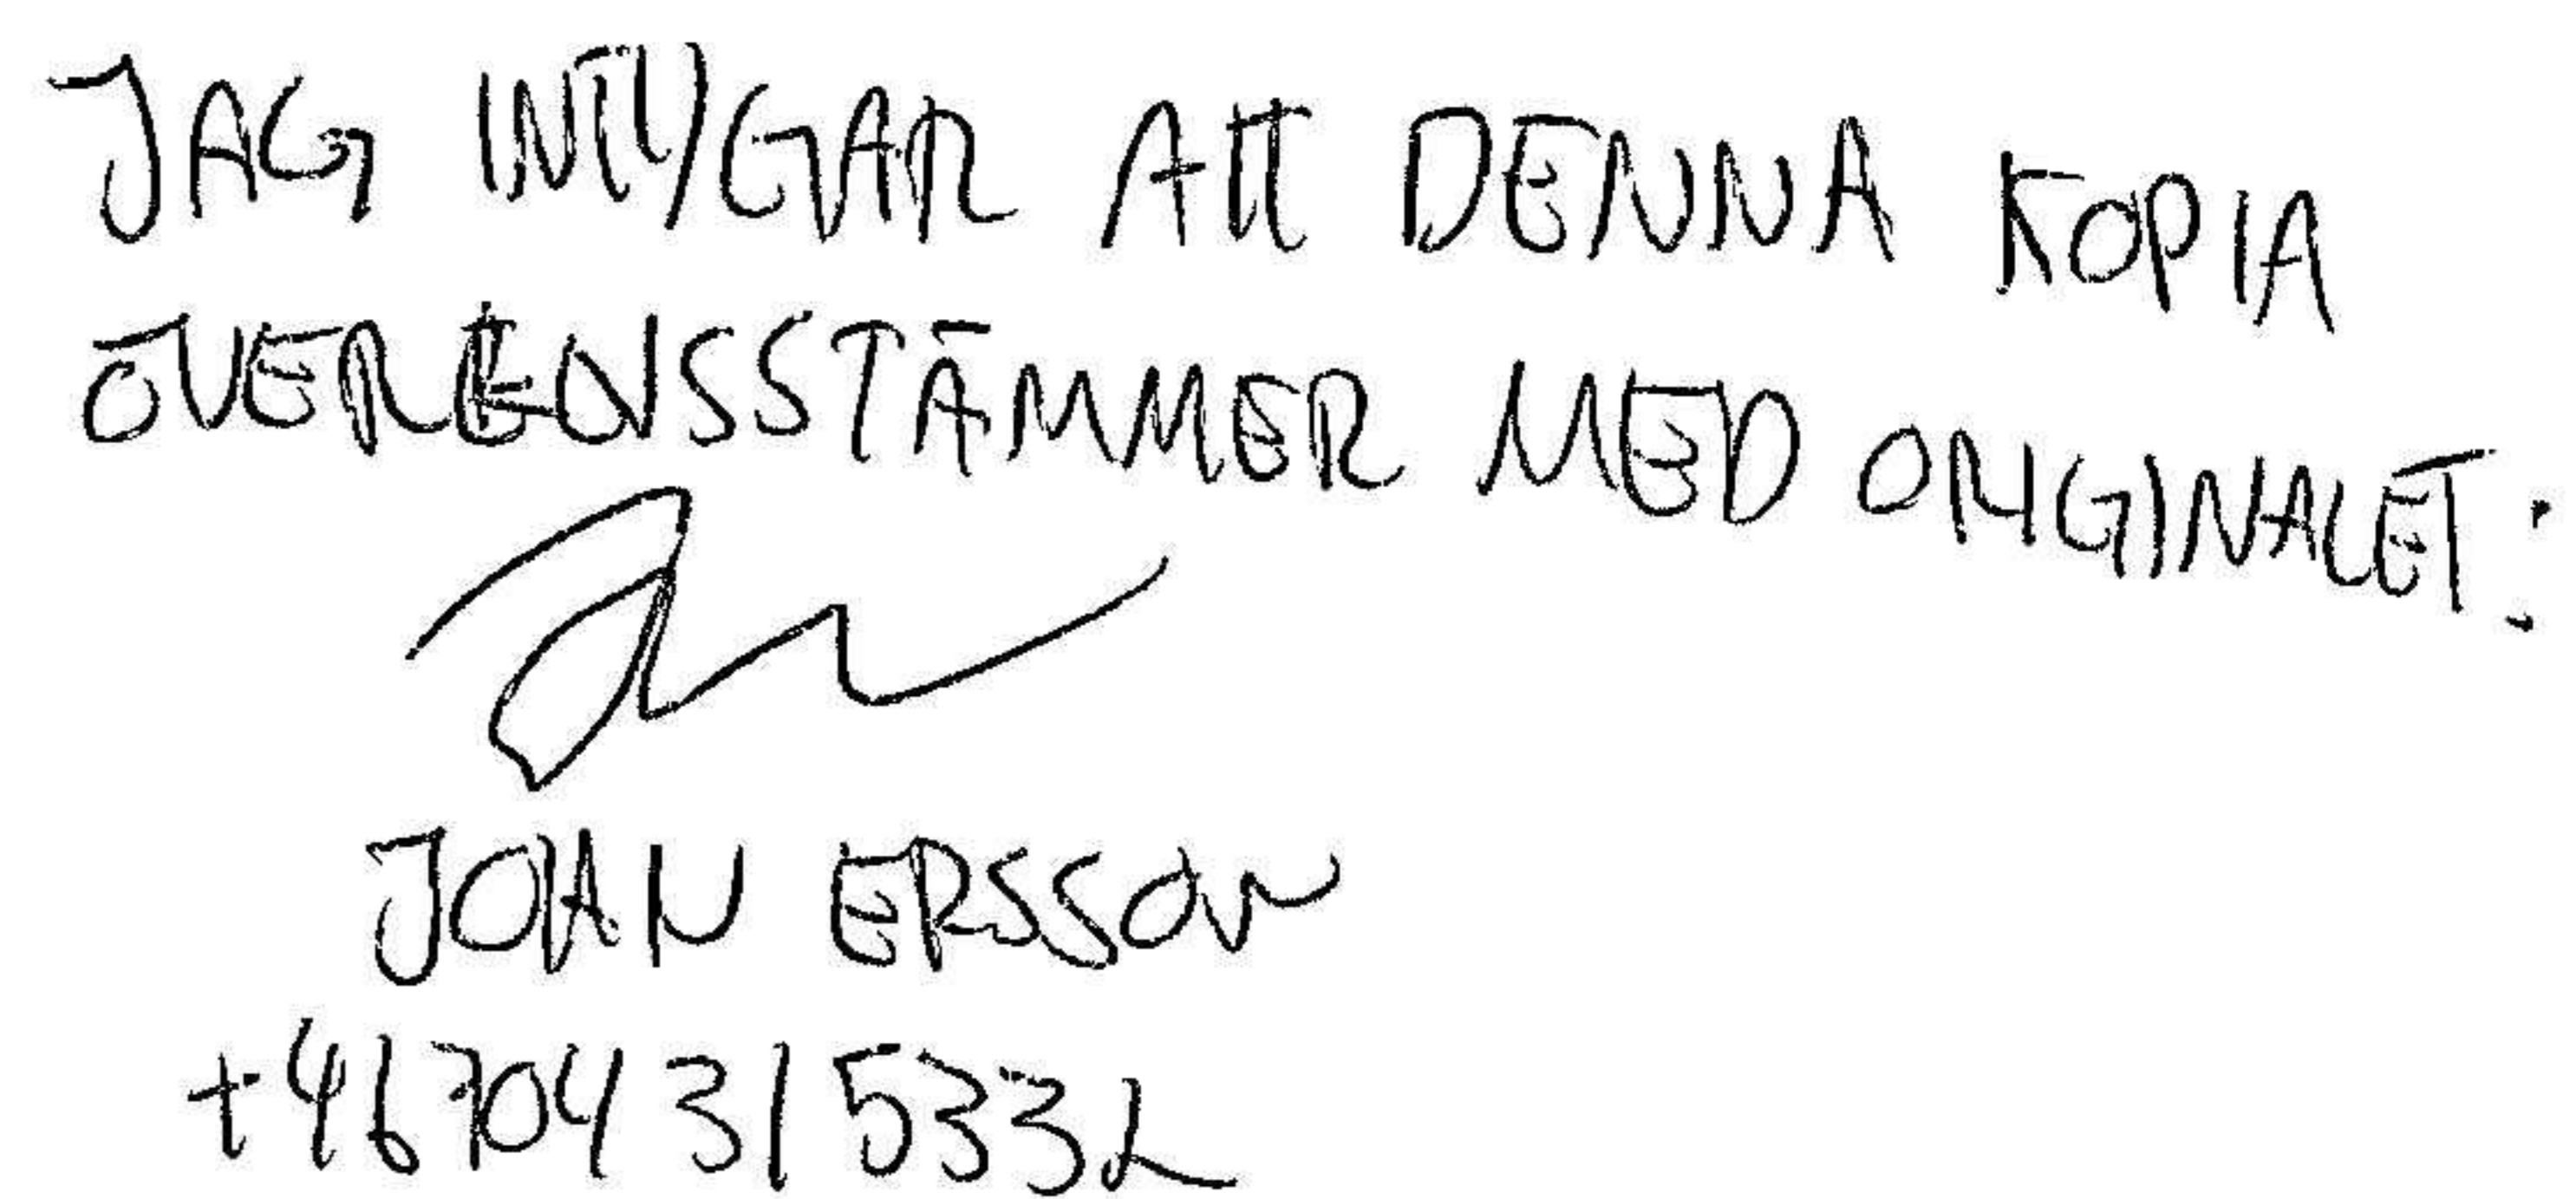 JAG INTYGAR ATT DENNA KOPIA
ÖVERENSSTÄMMER MED ORIGINALET:
JOHAN ERSSON
+46704315332